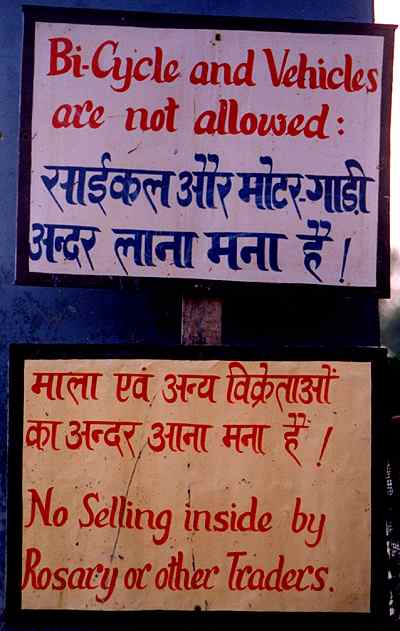 Bi-Cycle and Vehicles
are not allowed:
साईकल और मोटर-गाड़ी
अन्दर लाना मना हैं!
माला एवं अन्य विक्रेताओं
का अन्दर आना मना हैं!
No Selling inside by
Rosary or other Traders.